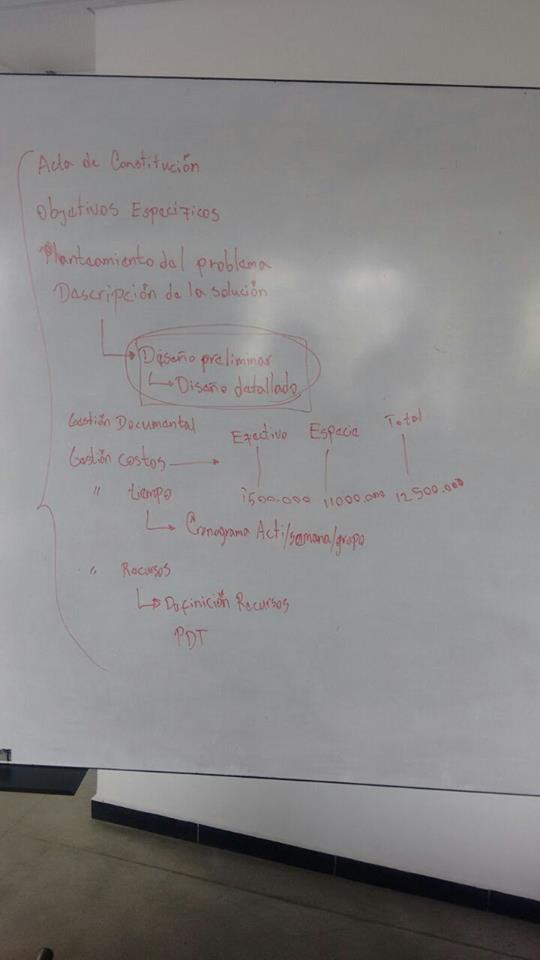 Acta de Constitución
Objetivos Específicos
Planteamiento del problema
Descripción de la solución
Diseño preliminar
Diseño detallado
Gestión Documental
Efectivo Especie Total
Gestión costos
" tiempo 1500.000 11000.000 12500.000
Cronograma Acti/semana/grupo
" Recursos
Definición Recursos
PDT